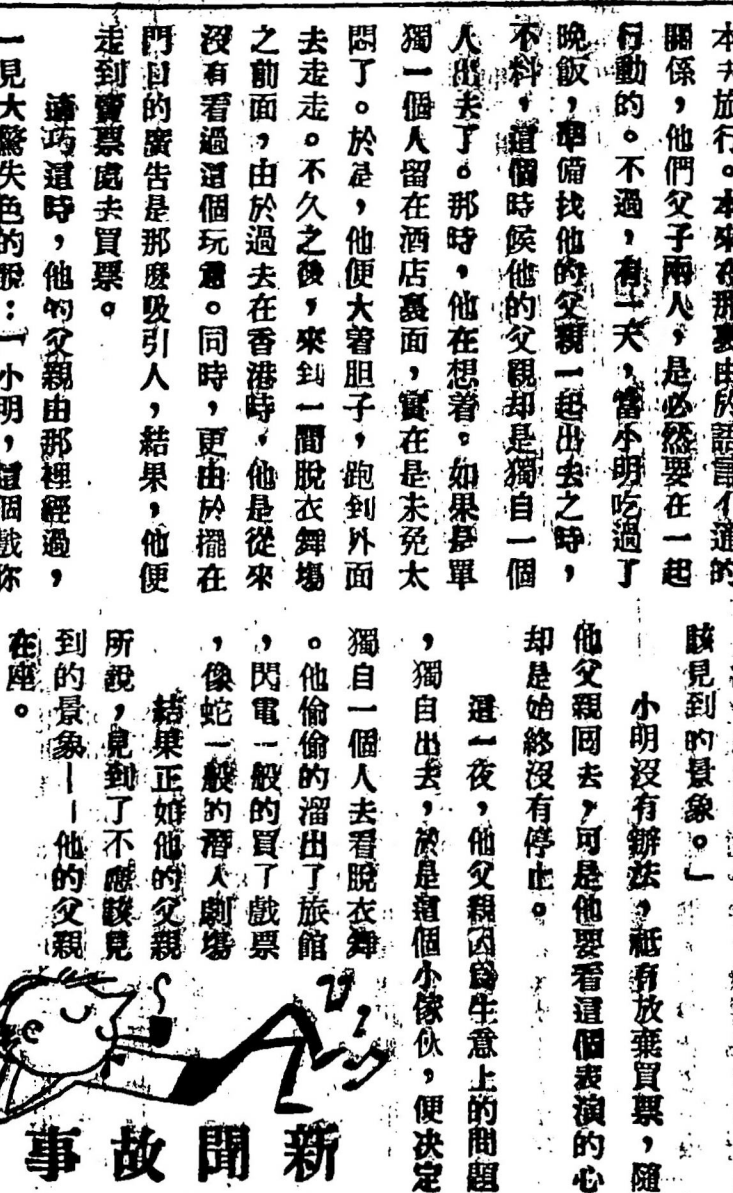 本去旅行。本來在那裏由於語言不通的
關係，他們父子兩人，是必然要在一起
行動的。不過，有一天，當小明吃過了
晚飯，準備找他的父親一起出去之時，
不料，這個時候他的父親却是獨自一個
人出去了。那時，他在想着。如果是單
獨一個人留在酒店裏面，實在是未免太
悶了。於是，他便大着胆子，跑到外面
去走走。不久之後，來到一間脫衣舞場
之前面，由於過去在香港時，他是從來
沒有看過這個玩意。同時，更由於擺在
門口的廣告是那麼吸引人，結果，他便
走到賣票處去買票。
適巧這時，他的父親由那裡經過，
一見大驚失色的說：「小明，這個戲你
該見到的景象。」
小明沒有辦法，祗有放棄買票，隨
他父親回去，可是他要看這個表演的心
却是始終沒有停止。
這一夜，他父親因為生意上的問題
，獨自出去，於是這個小傢伙，便決定
獨自一個人去看脫衣舞
。他偷偷的溜出了旅館
，閃電一般的買了戲票
，像蛇一般的潛入劇場
結果正如他的父親
所說，見到了不應該見
到的景象——他的父親
在座。
新聞故事